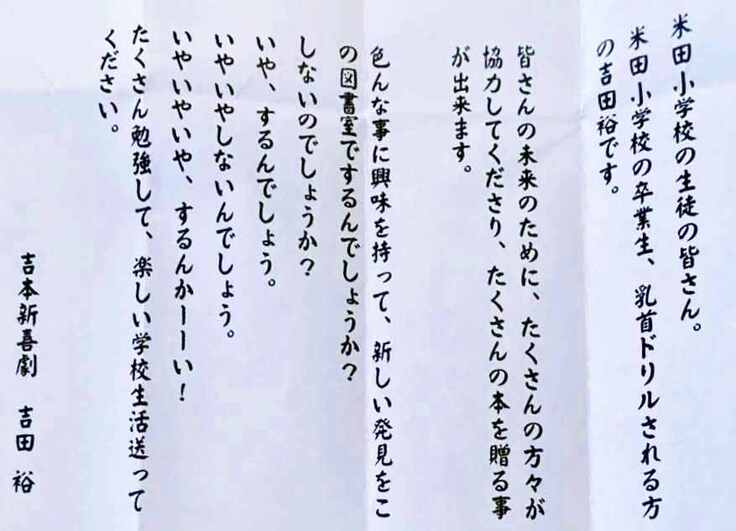 米田小学校の生徒の皆さん。
米田小学校の卒業生、乳首ドリルされる方
の吉田裕です。
皆さんの未来のために、たくさんの方々が
協力してくださり、たくさんの本を贈る事
が出来ます。
色んな事に興味を持って、新しい発見をこ
の図書室でするんでしょうか？
しないのでしょうか？
いや、するんでしょう。
いやいやしないんでしょう。
いやいやいや、するんかーーい！
たくさん勉強して、楽しい学校生活送って
ください。
吉本新喜劇　吉田　裕